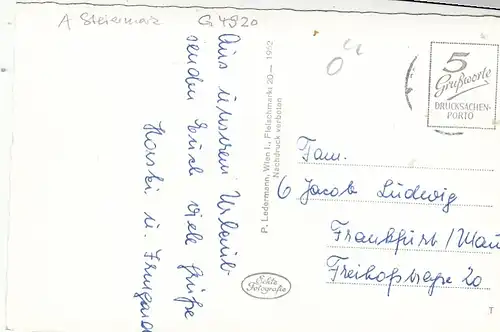 A Steiermark G 4920
Aus unserem Urlaub
senden Euch viele Grüße
Horsti u. Irmgard
P. Ledermann, Wien I., Fleischmarkt 20 — 1952
Nachdruck verboten
Echte
Fotografie
5
Grußworte
DRUCKSACHEN-
PORTO
Fam.
6 Jacob Ludwig
Frankfurt/Main
Freihofstraße 20